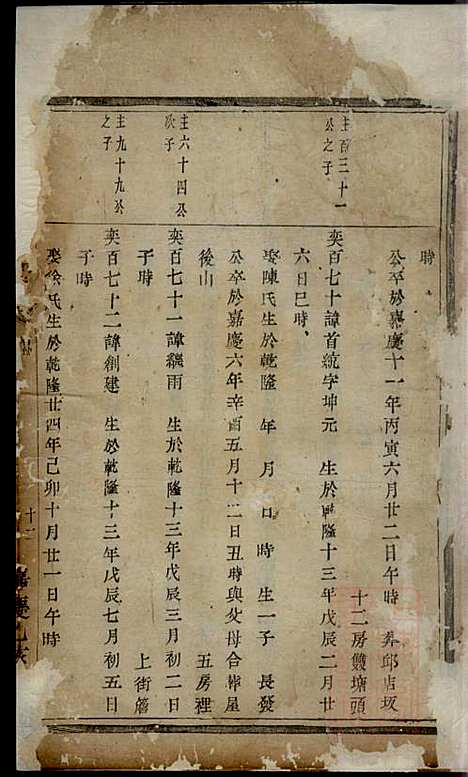 時
公卒於嘉慶十一年丙寅六月廿二日午時 葬邱店坂
十二房雙塘頭
主百三十一
公之子
奕百七十諱首統字坤元 生於乾隆十三年戊辰二月廿
六日巳時
娶陳氏生於乾隆 年 月 日 時 生一子 長發
公卒於嘉慶六年辛酉五月十二日丑時與父母合葬屋
後山
五房裡
主六十四公
次子
奕百七十一諱繼雨 生於乾隆十三年戊辰三月初二日
子時
上街簷
主九十九公
之子
奕百七十二諱創建 生於乾隆十三年戊辰七月初五日
子時
娶徐氏生於乾隆廿四年己卯十月廿一日午時
十一
嘉慶乙亥